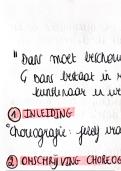 " Dans moet beschouw
↳ Dans bestaat in
kunstenaar
① INLEIDING
Choreografie :
② OMSCHRIJVING CHOREOG